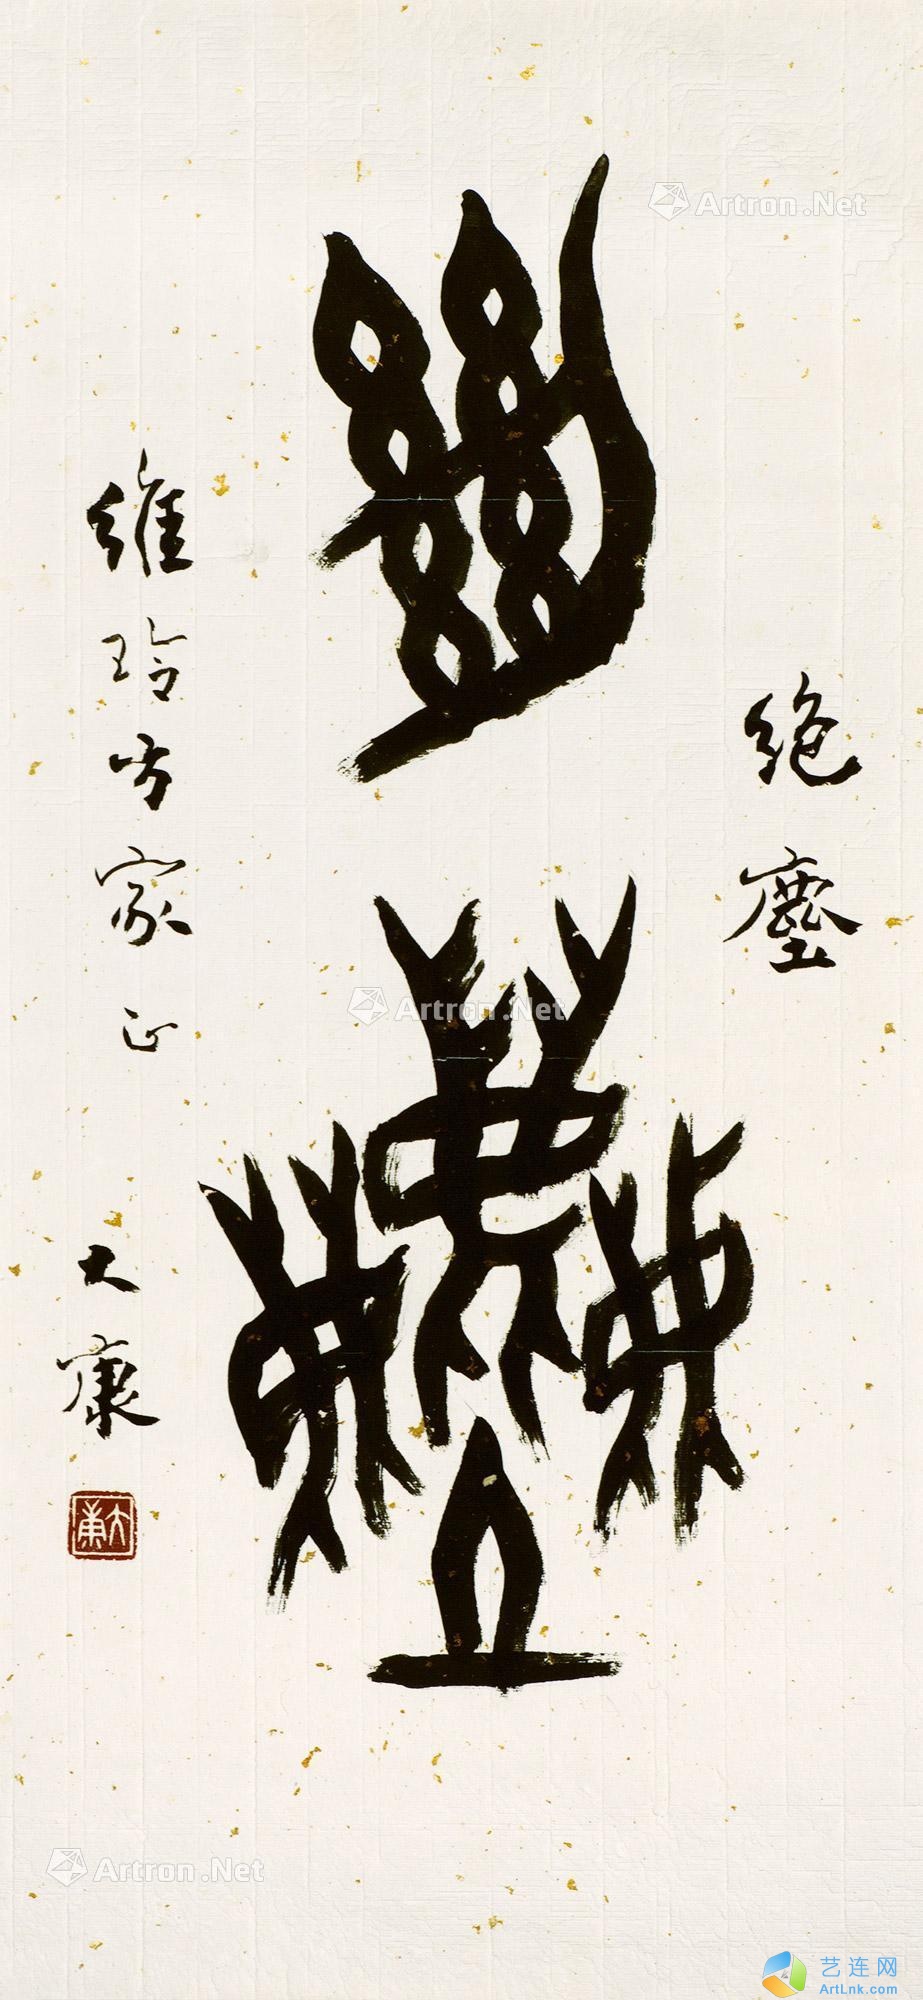 絶塵
絶塵
維玲方家正
大康
大康
Artron.Net
Artron.Net
Artron.Net
艺连网
ArtLnk.com